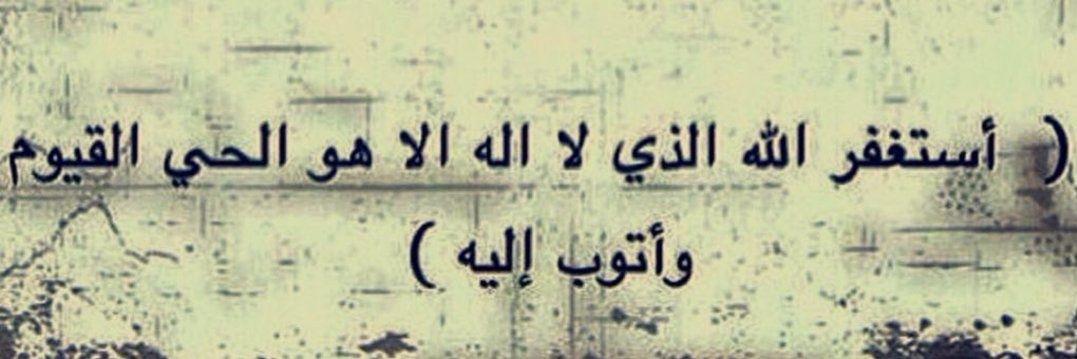 ( أستغفر الله الذي لا اله الا هو الحي القيوم
وأتوب إليه )